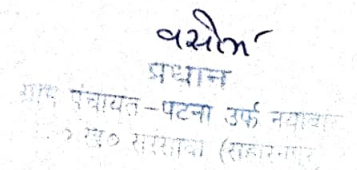 वसीम
प्रधान
ग्राम पंचायत-पटना उर्फ नयाबास
वि० ख० सरसावा (सहारनपुर)